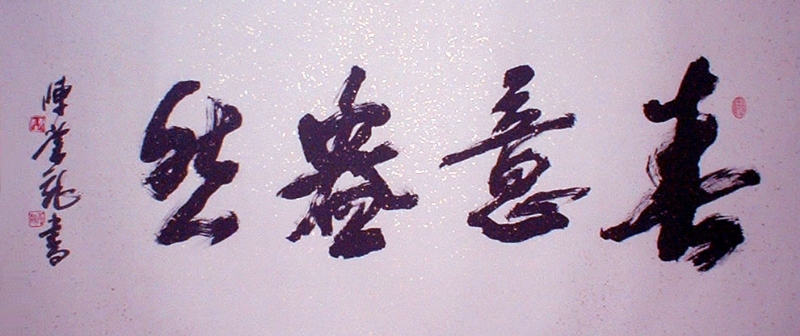 春意盎然
陳 龍書